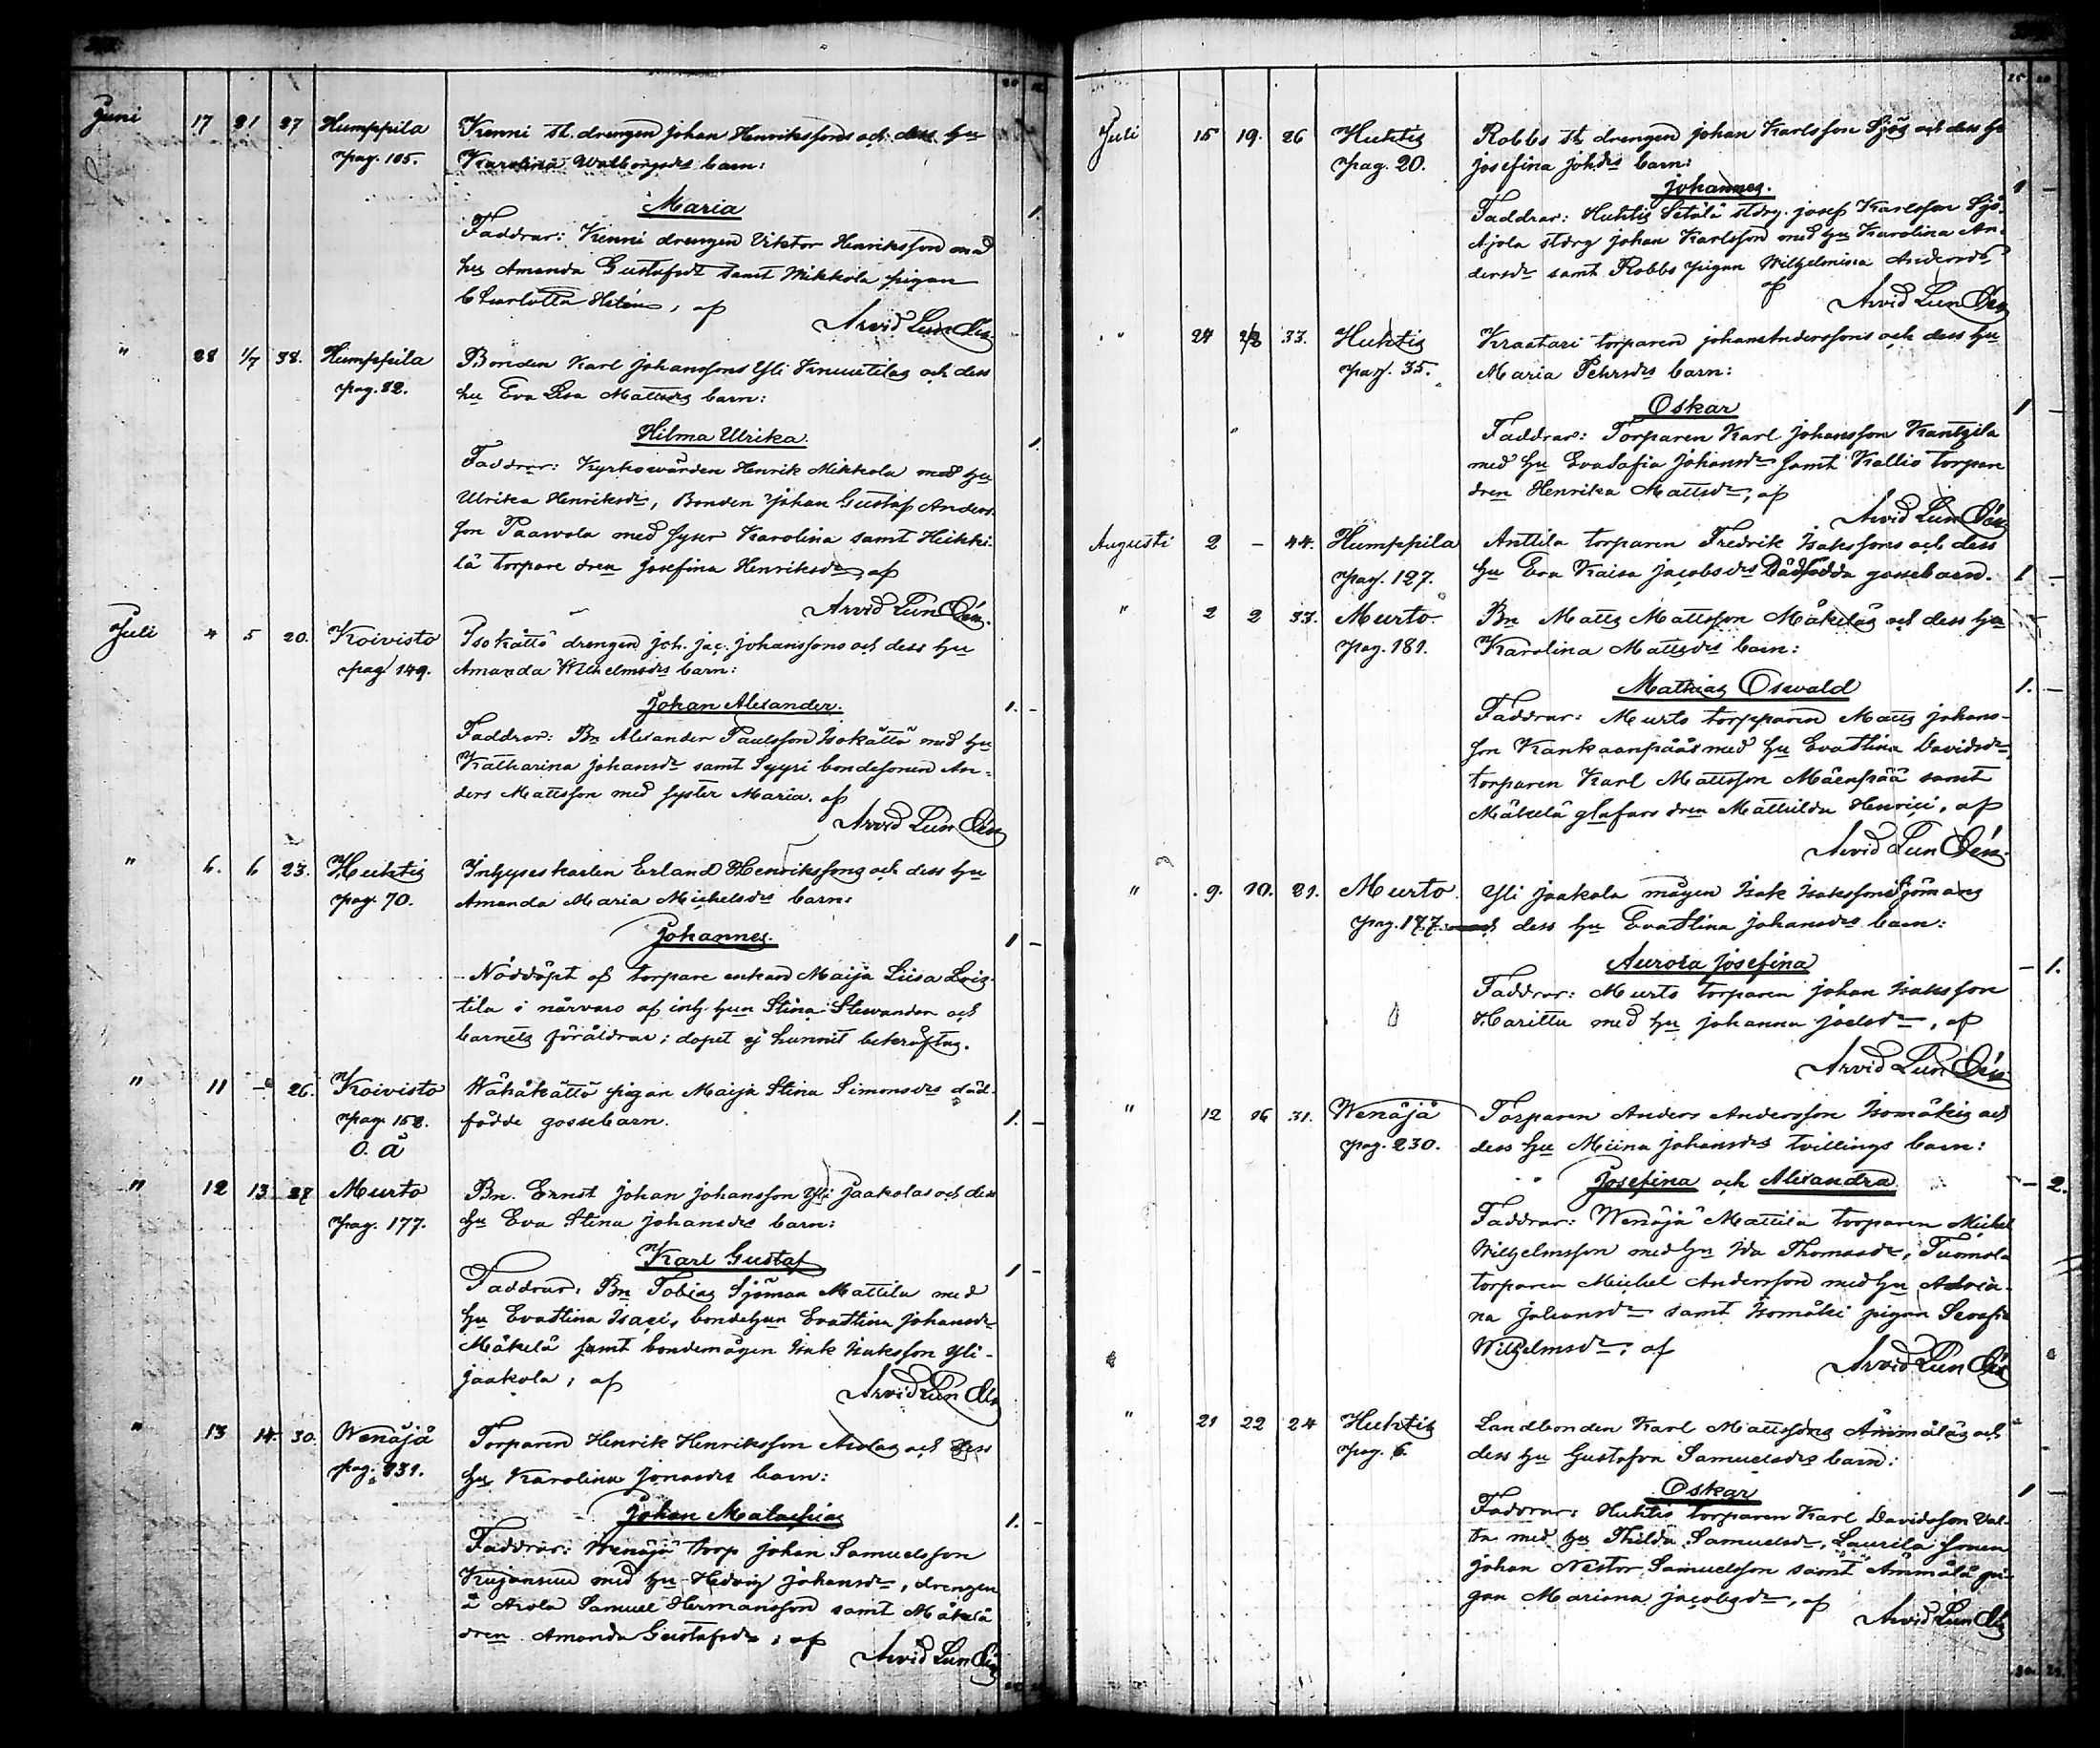 Juni 17 21 27 Humppila Kenni st. drengen Johan Henrikssons och dess hu
pag. 105. Karolina Walborgsdrs barn:
Maria 1.
Faddrar: Kenni drengen Viktor Henriksson med
hu Amanda Gustafsdr samt Mikkola pigan
Charlotta Helén, af
Arvid Lundén
" 28 1/7 38. Humppila Bonden Karl Johanssons Yli Knuutilas och dess
pag. 82. hu Eva Lisa Mattsdrs barn:
Hilma Ulrika. 1.
Faddrar: Kyrkowärden Henrik Mikkola med hu
Ulrika Henriksdr, Bonden Johan Gustaf Anders-
son Paawola med syster Karolina samt Heikki-
lä torpare dren Josefina Henriksdr, af
Arvid Lundén.
Juli 4 5 20. Koivisto Isokättö drengen Joh. Jac. Johanssons och dess hu
pag 149. Amanda Wilhelmsdrs barn:
Johan Alexander. 1. -
Faddrar: Bn Alexander Paulsson Isokättö med hu
Katharina Johansdr samt Syyri bondesonen An-
ders Mattsson med syster Maria. af
Arvid Lundén
" 6. 6 23. Huhtis Inhyseskarlen Erland Henrikssons och dess hu
pag. 70. Amanda Maria Michelsdrs barn:
Johannes. 1 -
Nöddöpt af torpare enkan Maija Liisa
tila i närvaro af inh. hun Stina och
barnets föräldrar; dopet ej hunnit bekräftas.
" 11 - 26. Koivisto Wähäkättö pigan Maija Stina Simonsdrs död-
pag. 152. födde gossebarn. 1. -
O. Ä
" 12 13 27 Murto Bn. Ernst Johan Johansson Yli Jaakolas och dess
pag. 177. hu Eva Stina Johansdrs barn:
Karl Gustaf 1 -
Faddrar: Bn Tobias Sjöman Mattila med
hu Evastina Isaci, bondehun Evastina Johansdr
Mäkelä samt bondemågen Isak Isaksson Yli-
jaakola, af
Arvid Lundén
" 13 14. 30. Wenäjä Torparen Henrik Henriksson och dess
pag. 231. hu Karolina Jonasdrs barn:
Johan Malachias 1. -
Faddrar: Wenäjä torp Johan Samuelsson
Kujansuu med hu Hedvig Johansdr, drengen
å Samuel Hermansson samt Mäkelä
dren Amanda Gustafsdr, af
Arvid Lundén
Juli 15 19. 26 Huhtis Robbs st. drengen Johan Karlsson Sjös och dess hu
pag. 20. Josefina Johdrs barn:
Johannes. 1 -
Faddrar: Huhtis Setälä stdrg. Josef Karlsson Sjö,
Ajola stdrg Johan Karlsson med hu Karolina An-
dersdr samt Robbs pigan Wilhelmina Andersdr
af Arvid Lundén
" 24 2/8 33. Huhtis Kraatari torparen Johan Anderssons och dess hu
pag. 35. Maria Pehrsdrs barn:
Oskar 1 -
Faddrar: Torparen Karl Johansson
med hu Eva Safia Johansdr samt Kallio torpare
dren Henrika Mattsdr, af
Arvid Lundén
Augusti 2 - 44. Humppila Anttila torparen Fredrik Isakssons och dess
pag. 127. hu Eva Kaisa Jacobsdrs Dödfödda gossebarn. 1 -
" 2 2 33. Murto Bn Matts Mattsson Mäkeläs och dess hu
pag. 181. Karolina Mattsdrs barn:
Mathias Oswald 1. -
Faddrar: Murto torpparen Matts Johans-
son Kankaanpää med hu Evastina Davidsdr,
torparen Karl Mattsson Mäenpää samt
Mäkelä dren Mathilda Henrici, af
Arvid Lundén.
" 9. 10. 21. Murto Yli Jaakola mågen Isak Isakssons Sjömans
pag. 177. och dess hu Evastina Johansdrs barn:
Aurora Josefina - 1.
Faddrar: Murto torparen Johan Isaksson
Harittu med hu Johanna Joelsdr, af
Arvid Lundén
" 12 16 31. Wenäjä Torparen Anders Andersson Isomäkis och
pag. 230. dess hu Miina Johansdrs tvillings barn:
Josefina och Alexandra - 2.
Faddrar: Wenäjä Mattila torparen Michel
Wilhelmsson med hu Ida Thomasdr, Tuomola
torparen Michel Andersson med hu Adria-
na Johansdr samt Isomäki pigan Serafia
Wilhelmsdr; af
Arvid Lundén
" 21 22 24 Huhtis Landbonden Karl Mattssons Ämmäläs och
pag. 6. dess hu Gustafva Samuelsdrs barn:
Oskar 1 -
Faddrar: Huhtis torparen Karl Davidsson Val-
ta med hu Thilda Samuelsdr, Laurila sonen
Johan Nestor Samuelsson samt Ämmälä pi-
gan Mariana Jacobsdr, af
Arvid Lundén